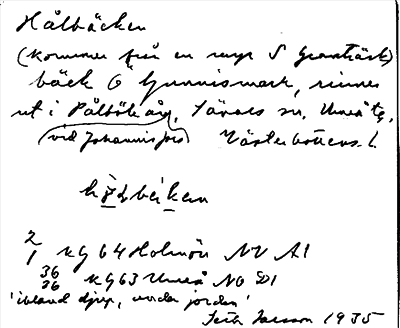 Hålbäcken
(kommer från en myr S Granträsk)
bäck Ö Gunnismark, rinner
ut i Pålböle å, Sävars sn, Umeå tg,
(vid Johannisfors) Västerbottens l.
2
1 kg 64 Holmön NV A1
36
36 kg 63 Umeå NO D1
'ibland djup, under jorden'
1935